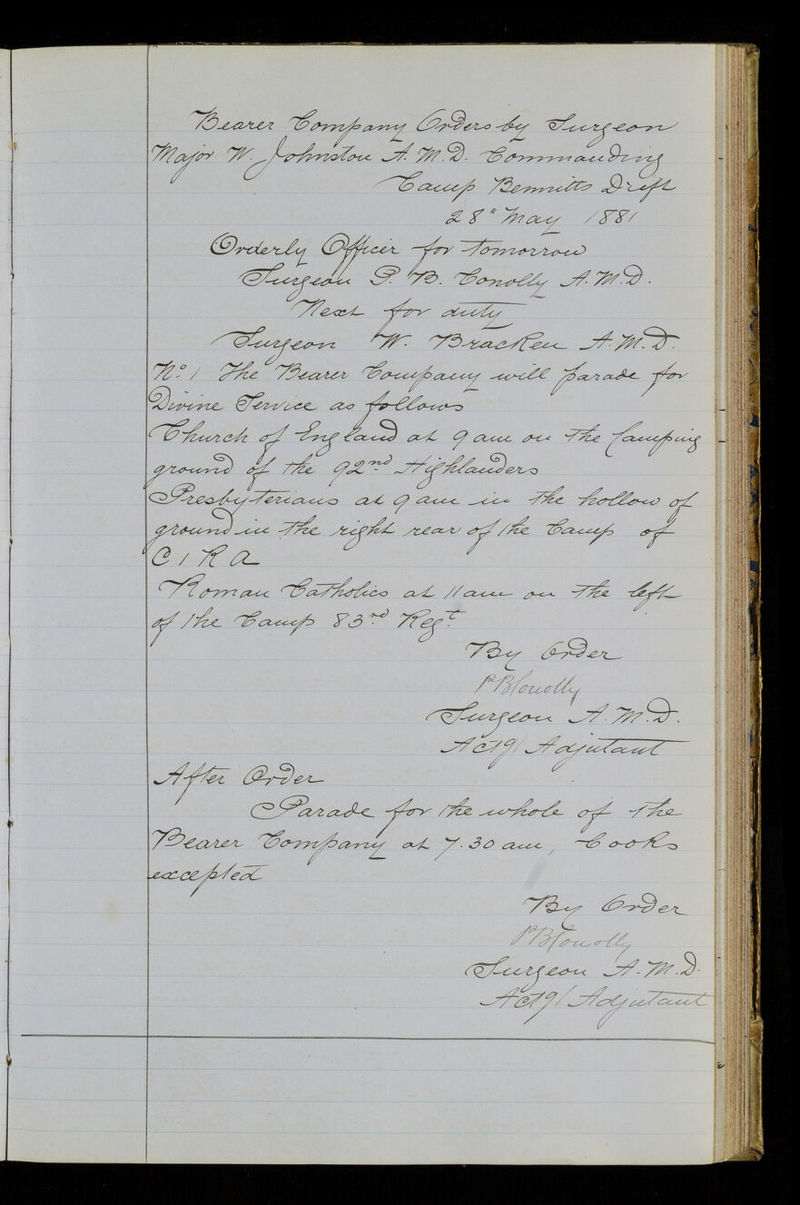 Bearer Company Orders by Surgeon
Major W. Johnston A.M.D. Commanding
Camp Bennitts Drift
28" May 1881
Orderly Officer for tomorrow
Surgeon P. B. Conolly A.M.D.
Next for duty
Surgeon W. Bracken A.M.D.
No. 1 The Bearer Company will parade for
Divine Service as follows
Church of England at 9 am on the Camping
ground of the 92nd Highlanders
Presbyterians at 9 am in the hollow of
ground in the right rear of the Camp of
C 1 R A
Roman Catholics at 11 am on the left
of the Camp 83rd Regt.
By Order
PBConolly
Surgeon A.M.D.
Actg/ Adjutant
After Order
Parade for the whole of the
Bearer Company at 7.30 am, Cooks
excepted
By Order
PBConolly
Surgeon A.M.D.
Actg/ Adjutant